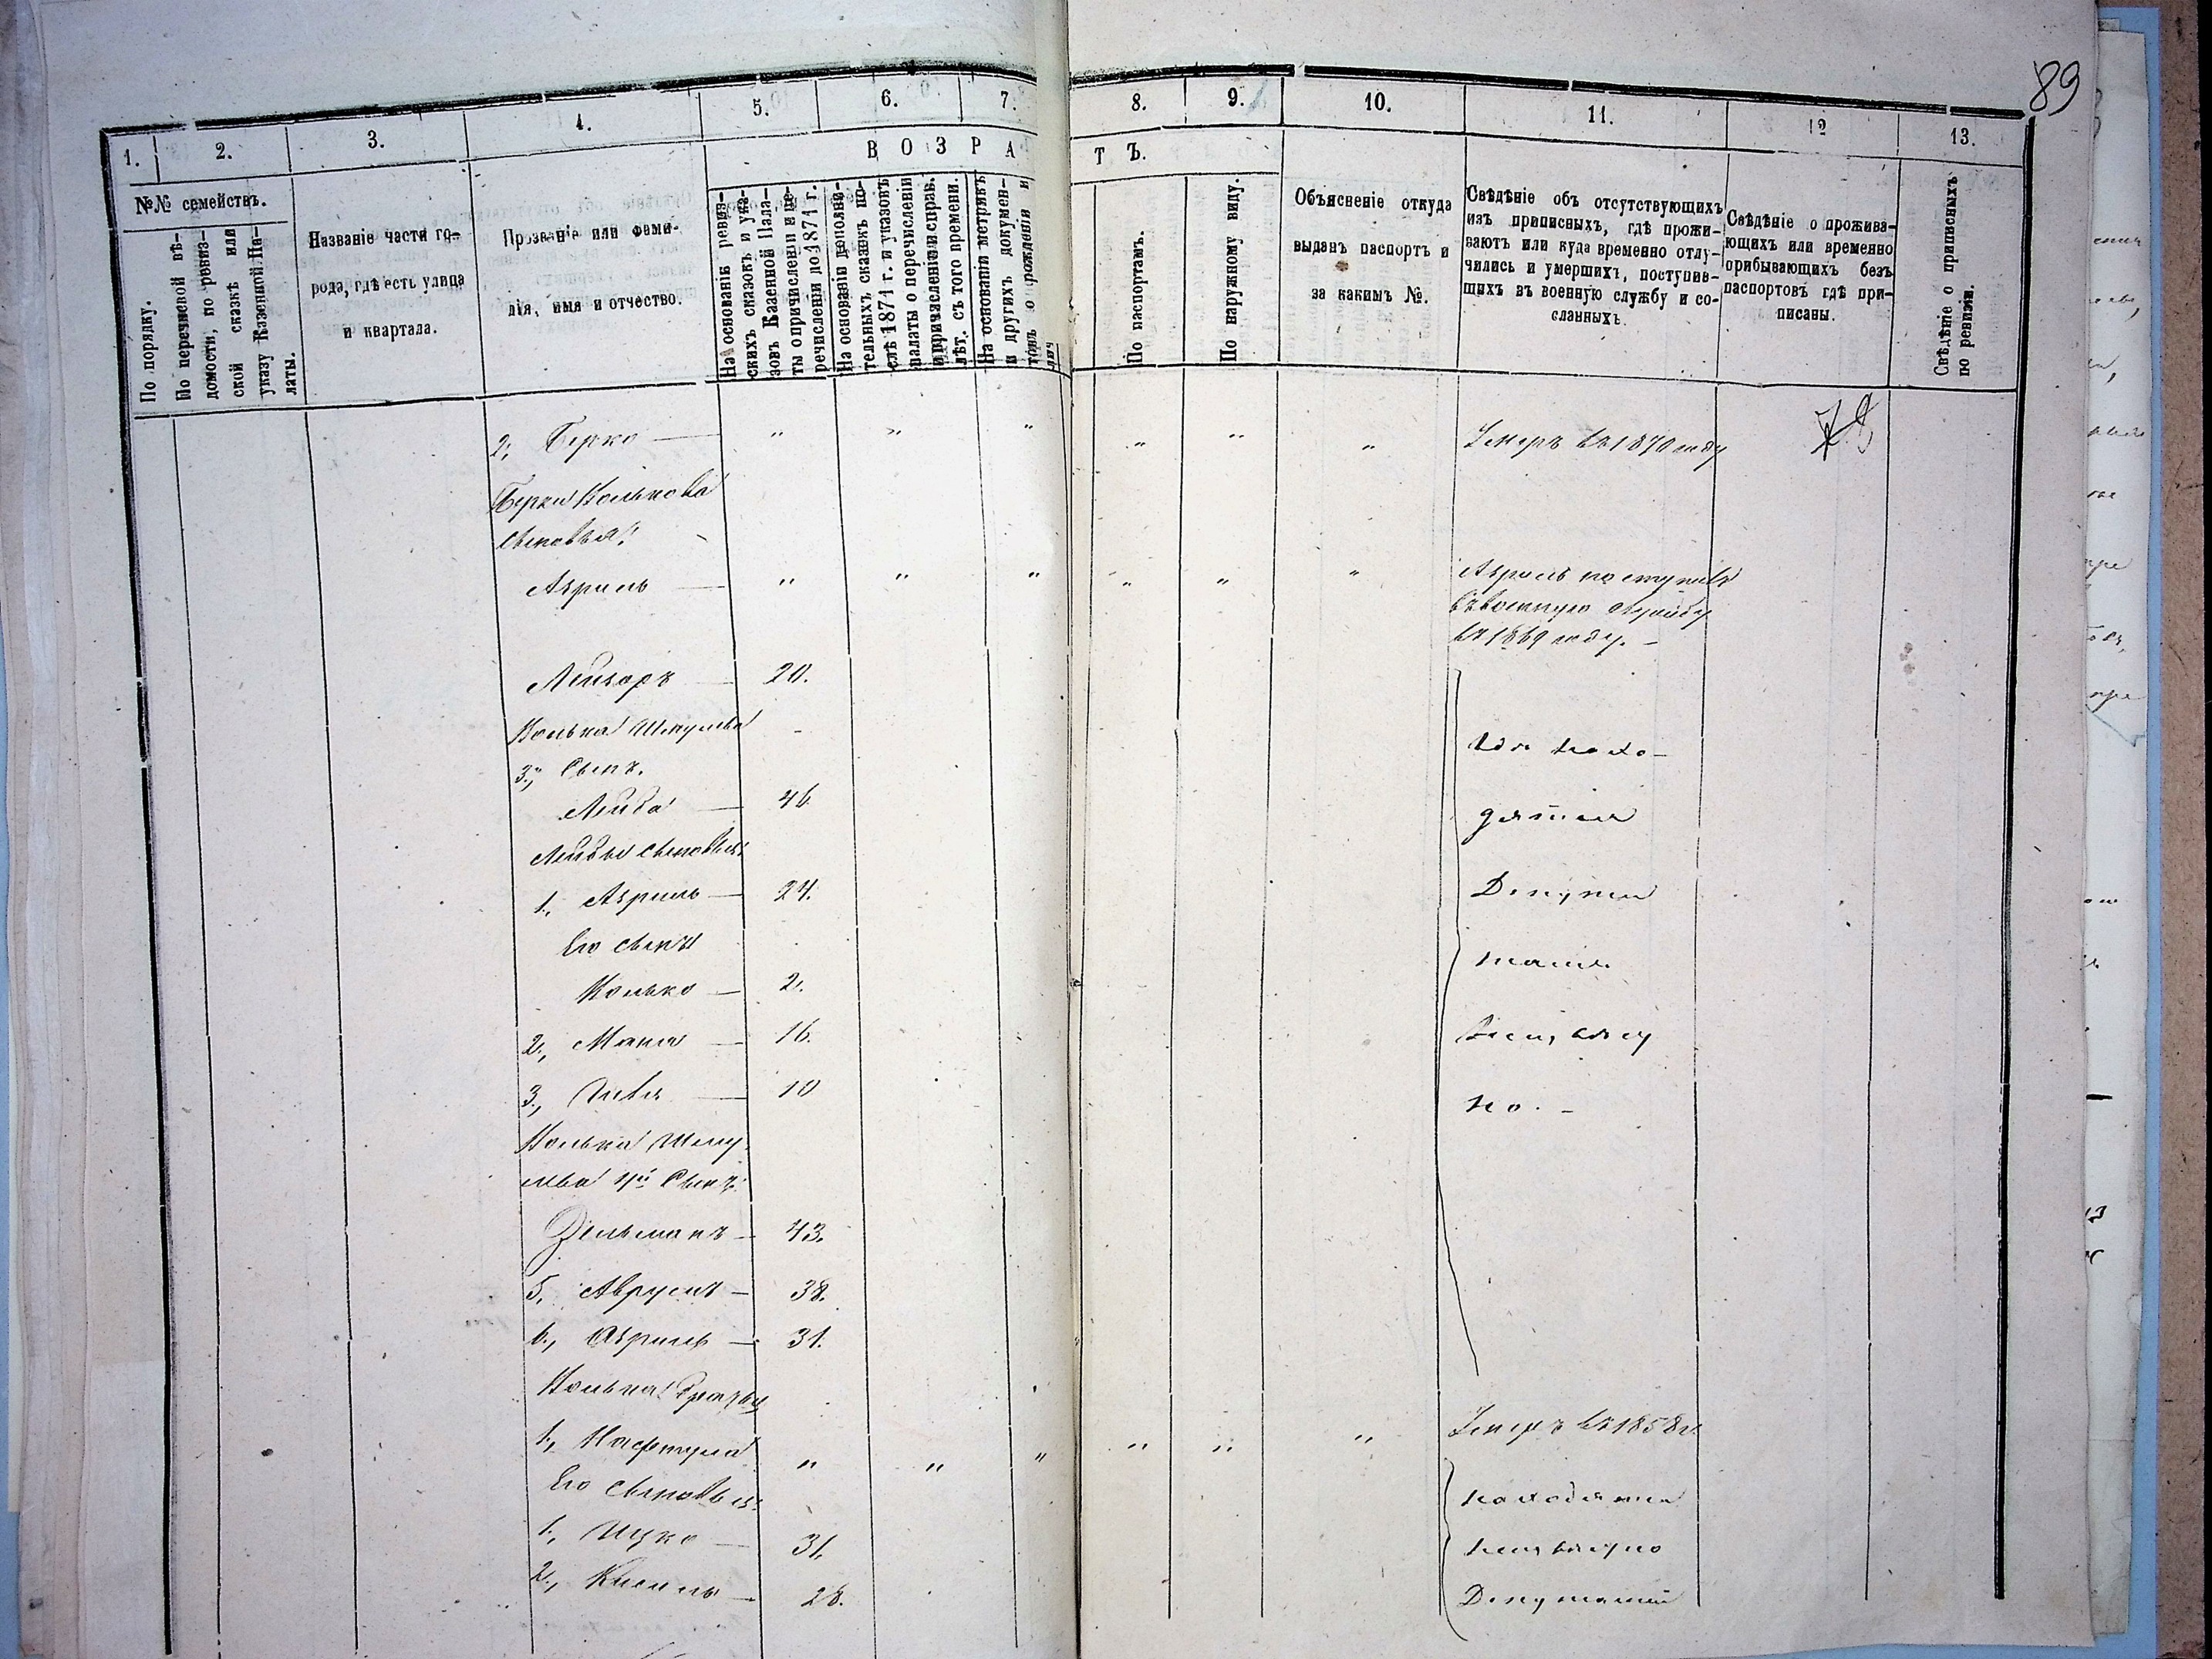 89
1.
2.
3.
4.
5.
6.
7.
8.
9.
10.
11.
12
13.
№№ семействъ.
ВОЗРА
ТЪ.
По порядку.
По перечневой вѣ-
домости, по ревиз-
ской сказкѣ или
указу Казенной Па-
латы.
Названіе части го-
рода, гдѣ есть улица
и квартала.
Прозваніе или фами-
лія, имя и отчество.
На основаніи ревиз-
скихъ сказокъ и ука-
зовъ Казенной Пала-
ты о причисленіи и пе-
речисленіи до 1871 г.
На основаніи дополни-
тельныхъ сказокъ по-
слѣ 1871 г. и указовъ
палаты о перечисленіи
и причисленіи и справ.
лѣт. съ того времени.
На основаніи метрикъ
и другихъ докумен-
товъ о рожденіи и
По паспортамъ.
По наружному виду.
Объясненіе откуда
выданъ паспортъ и
за какимъ №.
Свѣдѣніе объ отсутствующихъ
изъ приписныхъ, гдѣ прожи-
ваютъ или куда временно отлу-
чились и умершихъ, поступив-
шихъ въ военную службу и со-
сланныхъ.
Свѣдѣніе о прожива-
ющихъ или временно
прибывающихъ безъ
паспортовъ гдѣ при-
писаны.
Свѣдѣніе о приписныхъ
по ревизіи.
2, Берко — " " " " " " Умеръ въ 1870 году
Берки Колькова
сыновья:
Азриль — " " " " " " Азриль поступилъ
въ военную службу
въ 1869 году. —
Лейзоръ — 20.
Колька Шмулева
3, Сынъ.
Лейба — 46.
Лейбы сыновья:
1, Азриль — 24.
Его сынъ
Колько — 2.
2, — 16.
3, — 10
Колька Шму-
лева 4й Сынъ:
Зельманъ — 43.
5, Аврумъ — 38.
6, Азриль — 31.
гдѣ нахо-
дятся
Депута-
тамъ
неизвѣст
но. —
Колька братья
1, Нафтула " " " " " " Умеръ въ 1858 г.
Его сыновья:
1, Ицко — 31.
2, Кисиль — 28.
находятся
неизвѣстно